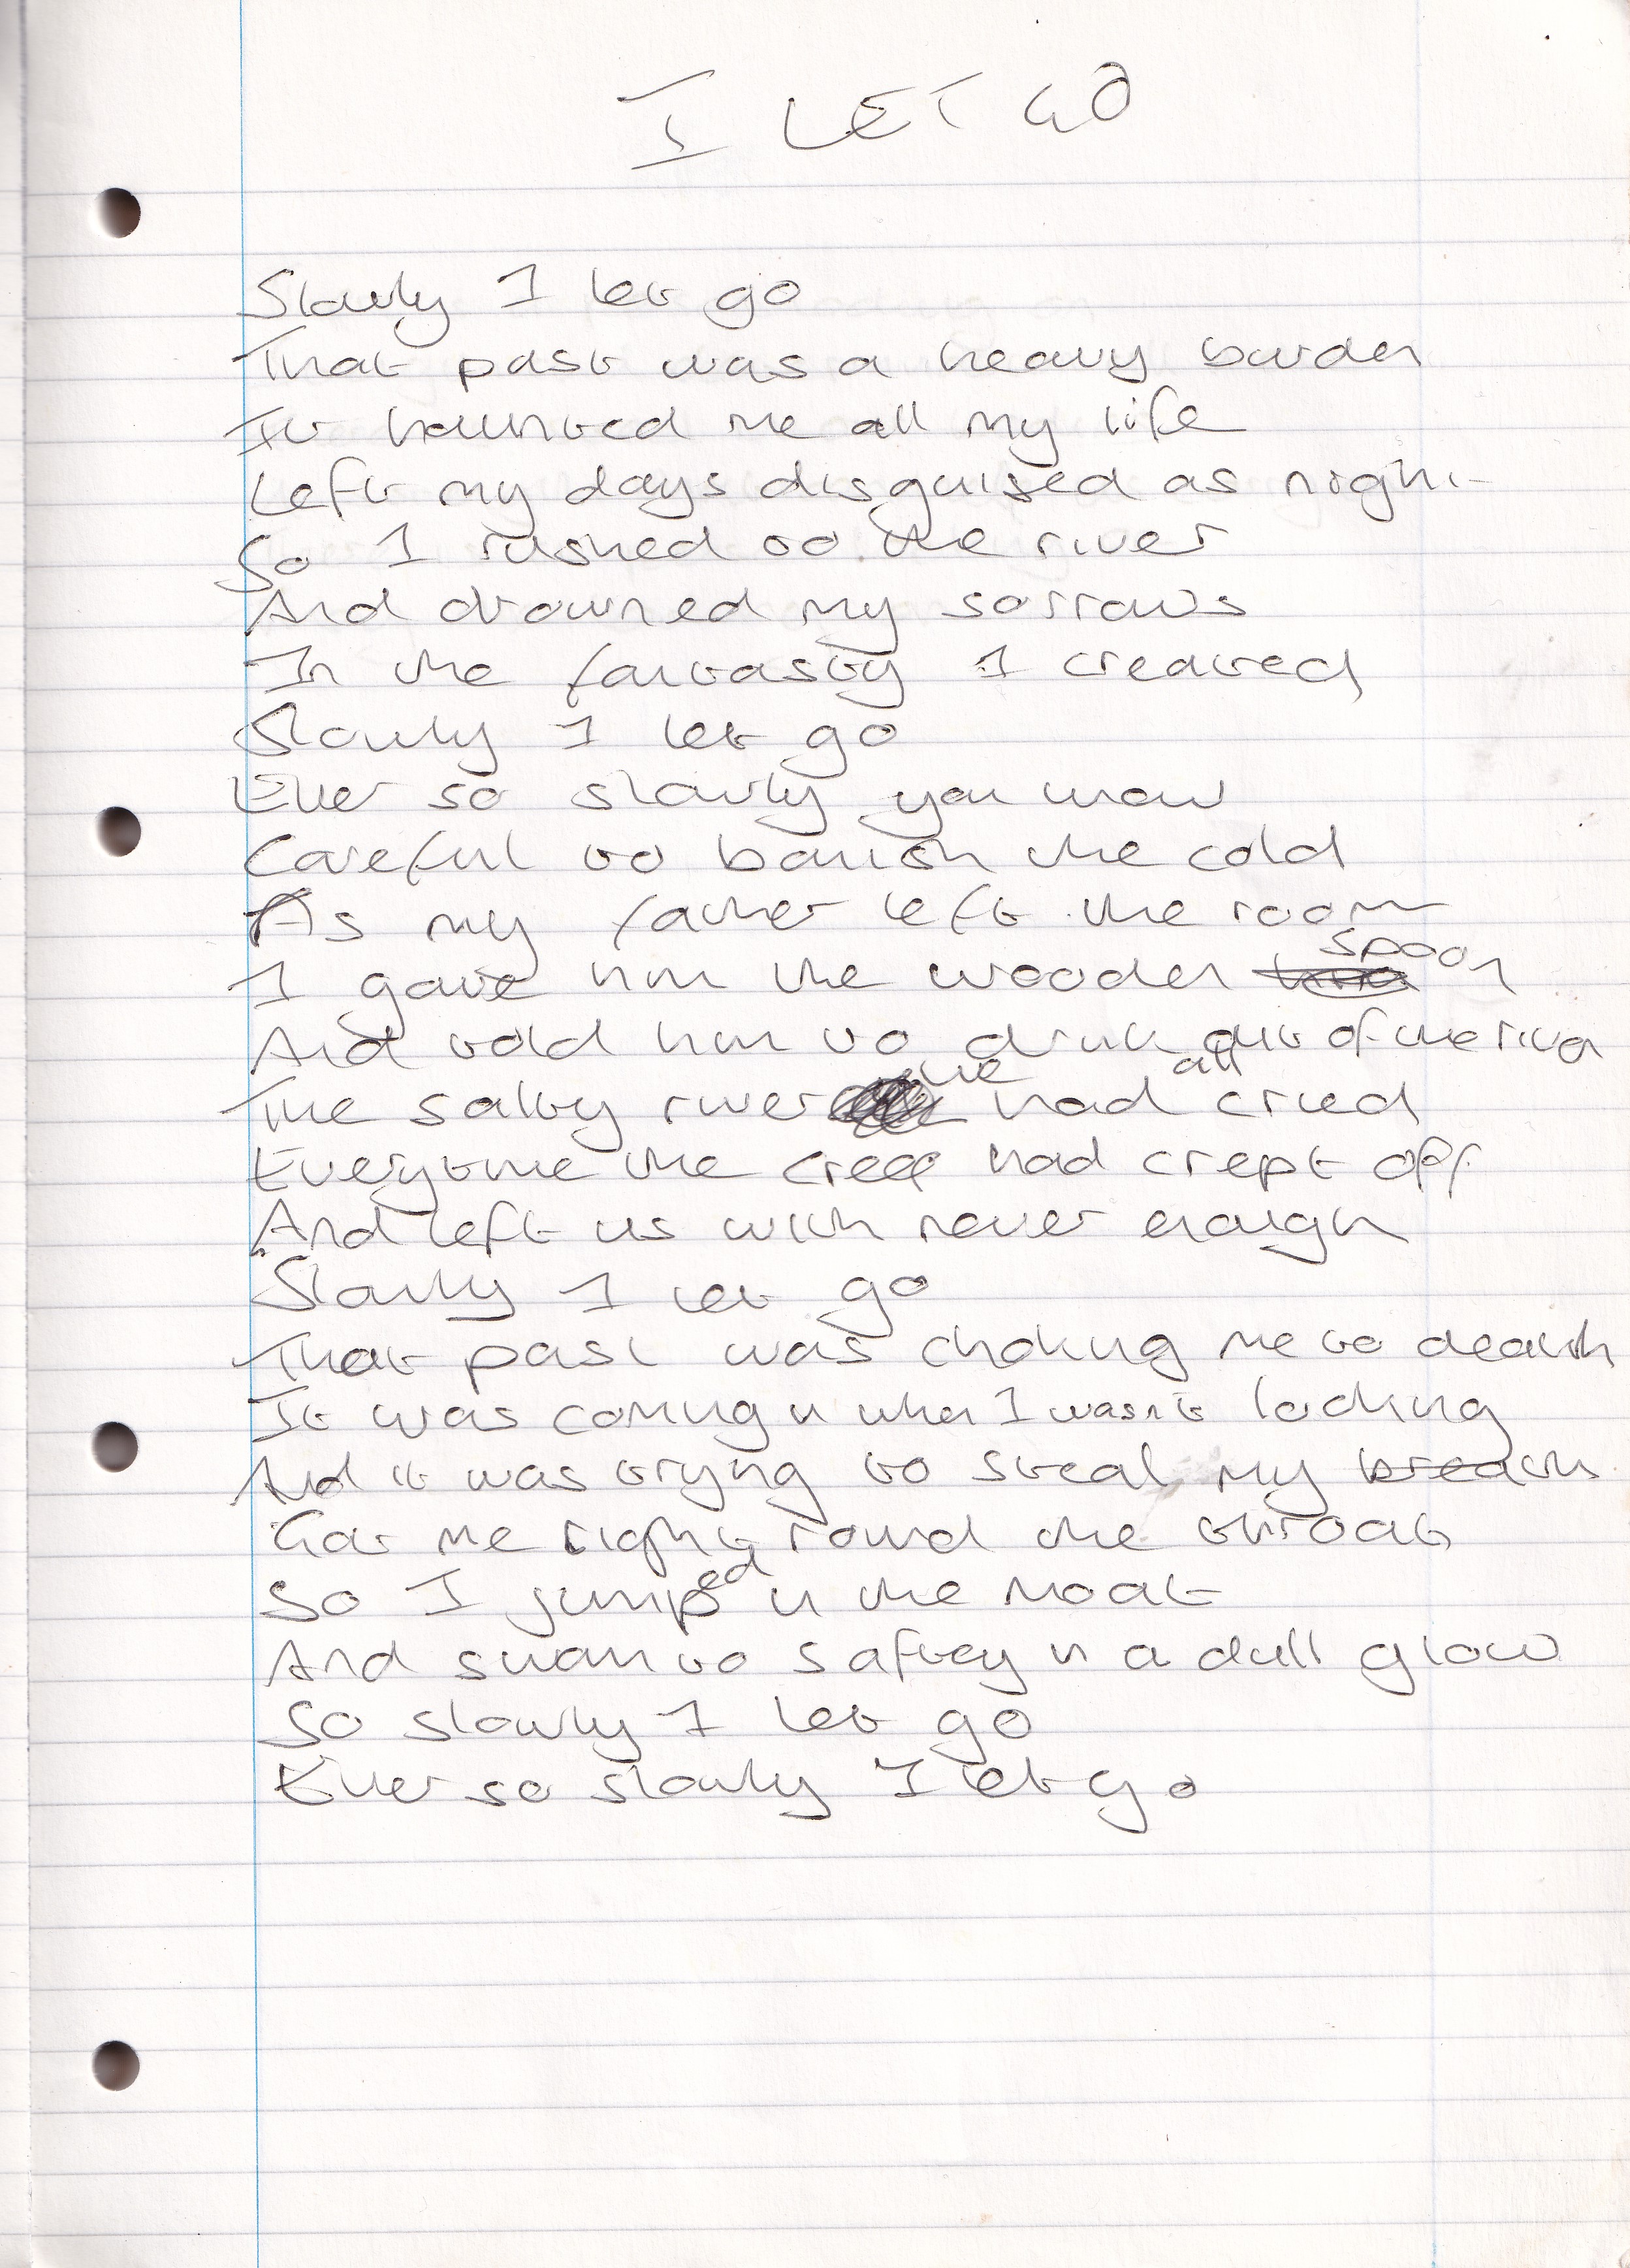 I LET GO
Slowly I let go
That past was a heavy burden
It haunted me all my life
Left my days disguised as night
So I rushed to the river
And drowned my sorrows
In the fantasty I created
Slowly I let go
Ever so slowly you know
Careful to banish the cold
As my father left the room
I gave him the wooden spoon
And told him to drink out of the river
The salty river we had all cried
Everytime the creep had crept off
And left us with never enough
Slowly I let go
That past was choking me to death
It was coming in when I wasn't looking
And it was trying to steal my breath
Got me right round the throat
So I jumped in the moat
And swam to saftey in a dull glow
So slowly I let go
Ever so slowly I let go